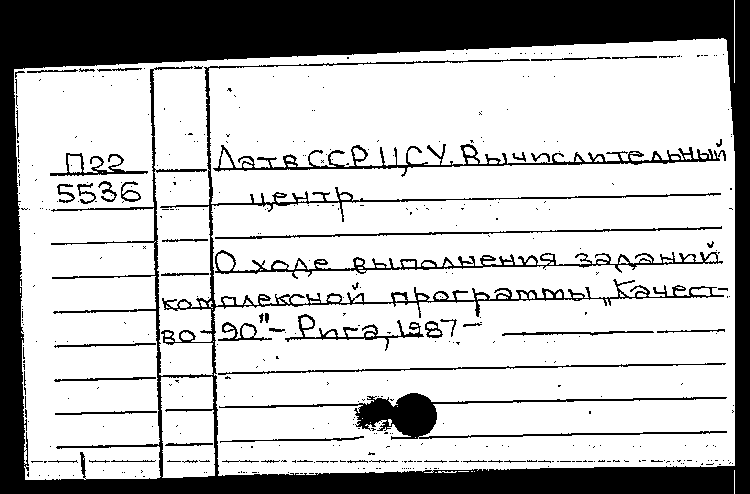 П22
5536
Латв ССР ЦСУ. Вычислительный
центр.
О ходе выполнения заданий
комплексной программы „Качест-
во-90"- Рига, 1987-